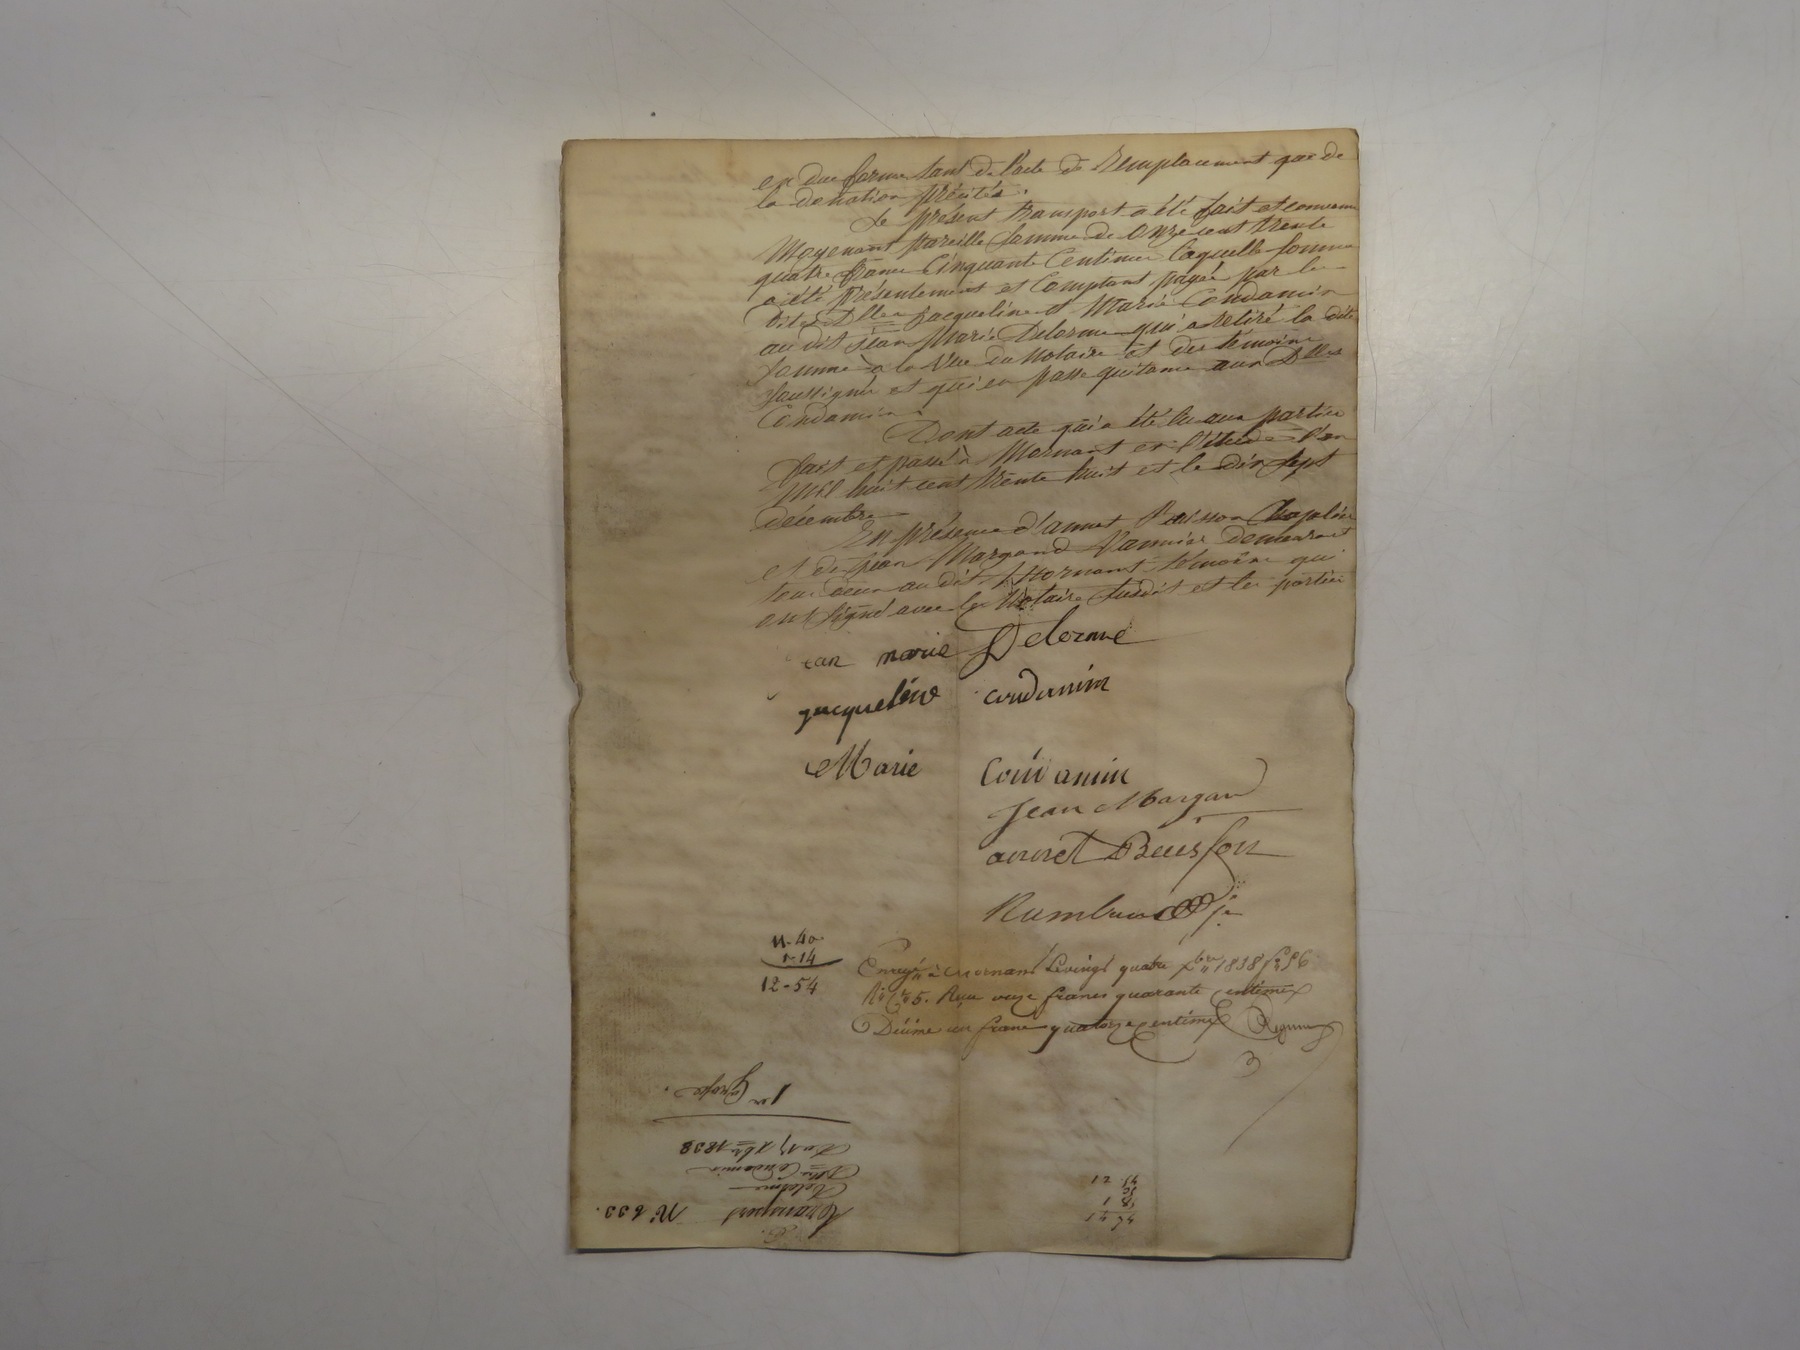 en due forme tant de l'acte de Remplacement que de
la donation précités.
Le présent transport a été fait et convenu
Moyenant pareille somme de Onze cent trente
quatre francs Cinquante Centimes laquelle somme
a été présentement et Comptant payée par les
dites Dlles Jacqueline et Marie Condamin
au dit Jean Marie Delorme qui a retiré la dite
somme à la Vue du Notaire et des témoins
soussignés et qui en passe quitance aux Dlles
Condamin.
Dont acte qui a été lu aux parties
fait et passé à Mornant en l'étude l'an
Mil huit cent trente huit et le dix sept
décembre
En présence d'annet Buisson
et de Jean Margand demeurant
tous deux au dit Mornant témoins qui
ont signé avec le Notaire susdit et les parties
ean marie Delorme
jacqueline condamin
Marie Condamin
Jean Margan
annet Buisson
11-40
1-14
12-54
Enregé à Mornant le vingt quatre xbre 1838 fo 96
Ro Co 5. Reçu onze francs quarante centimes
Décime un franc quatorze centimes
1re Grosse.
Du 17 xbre 1838
Dlles Condamin
Delorme
Transport No 633.